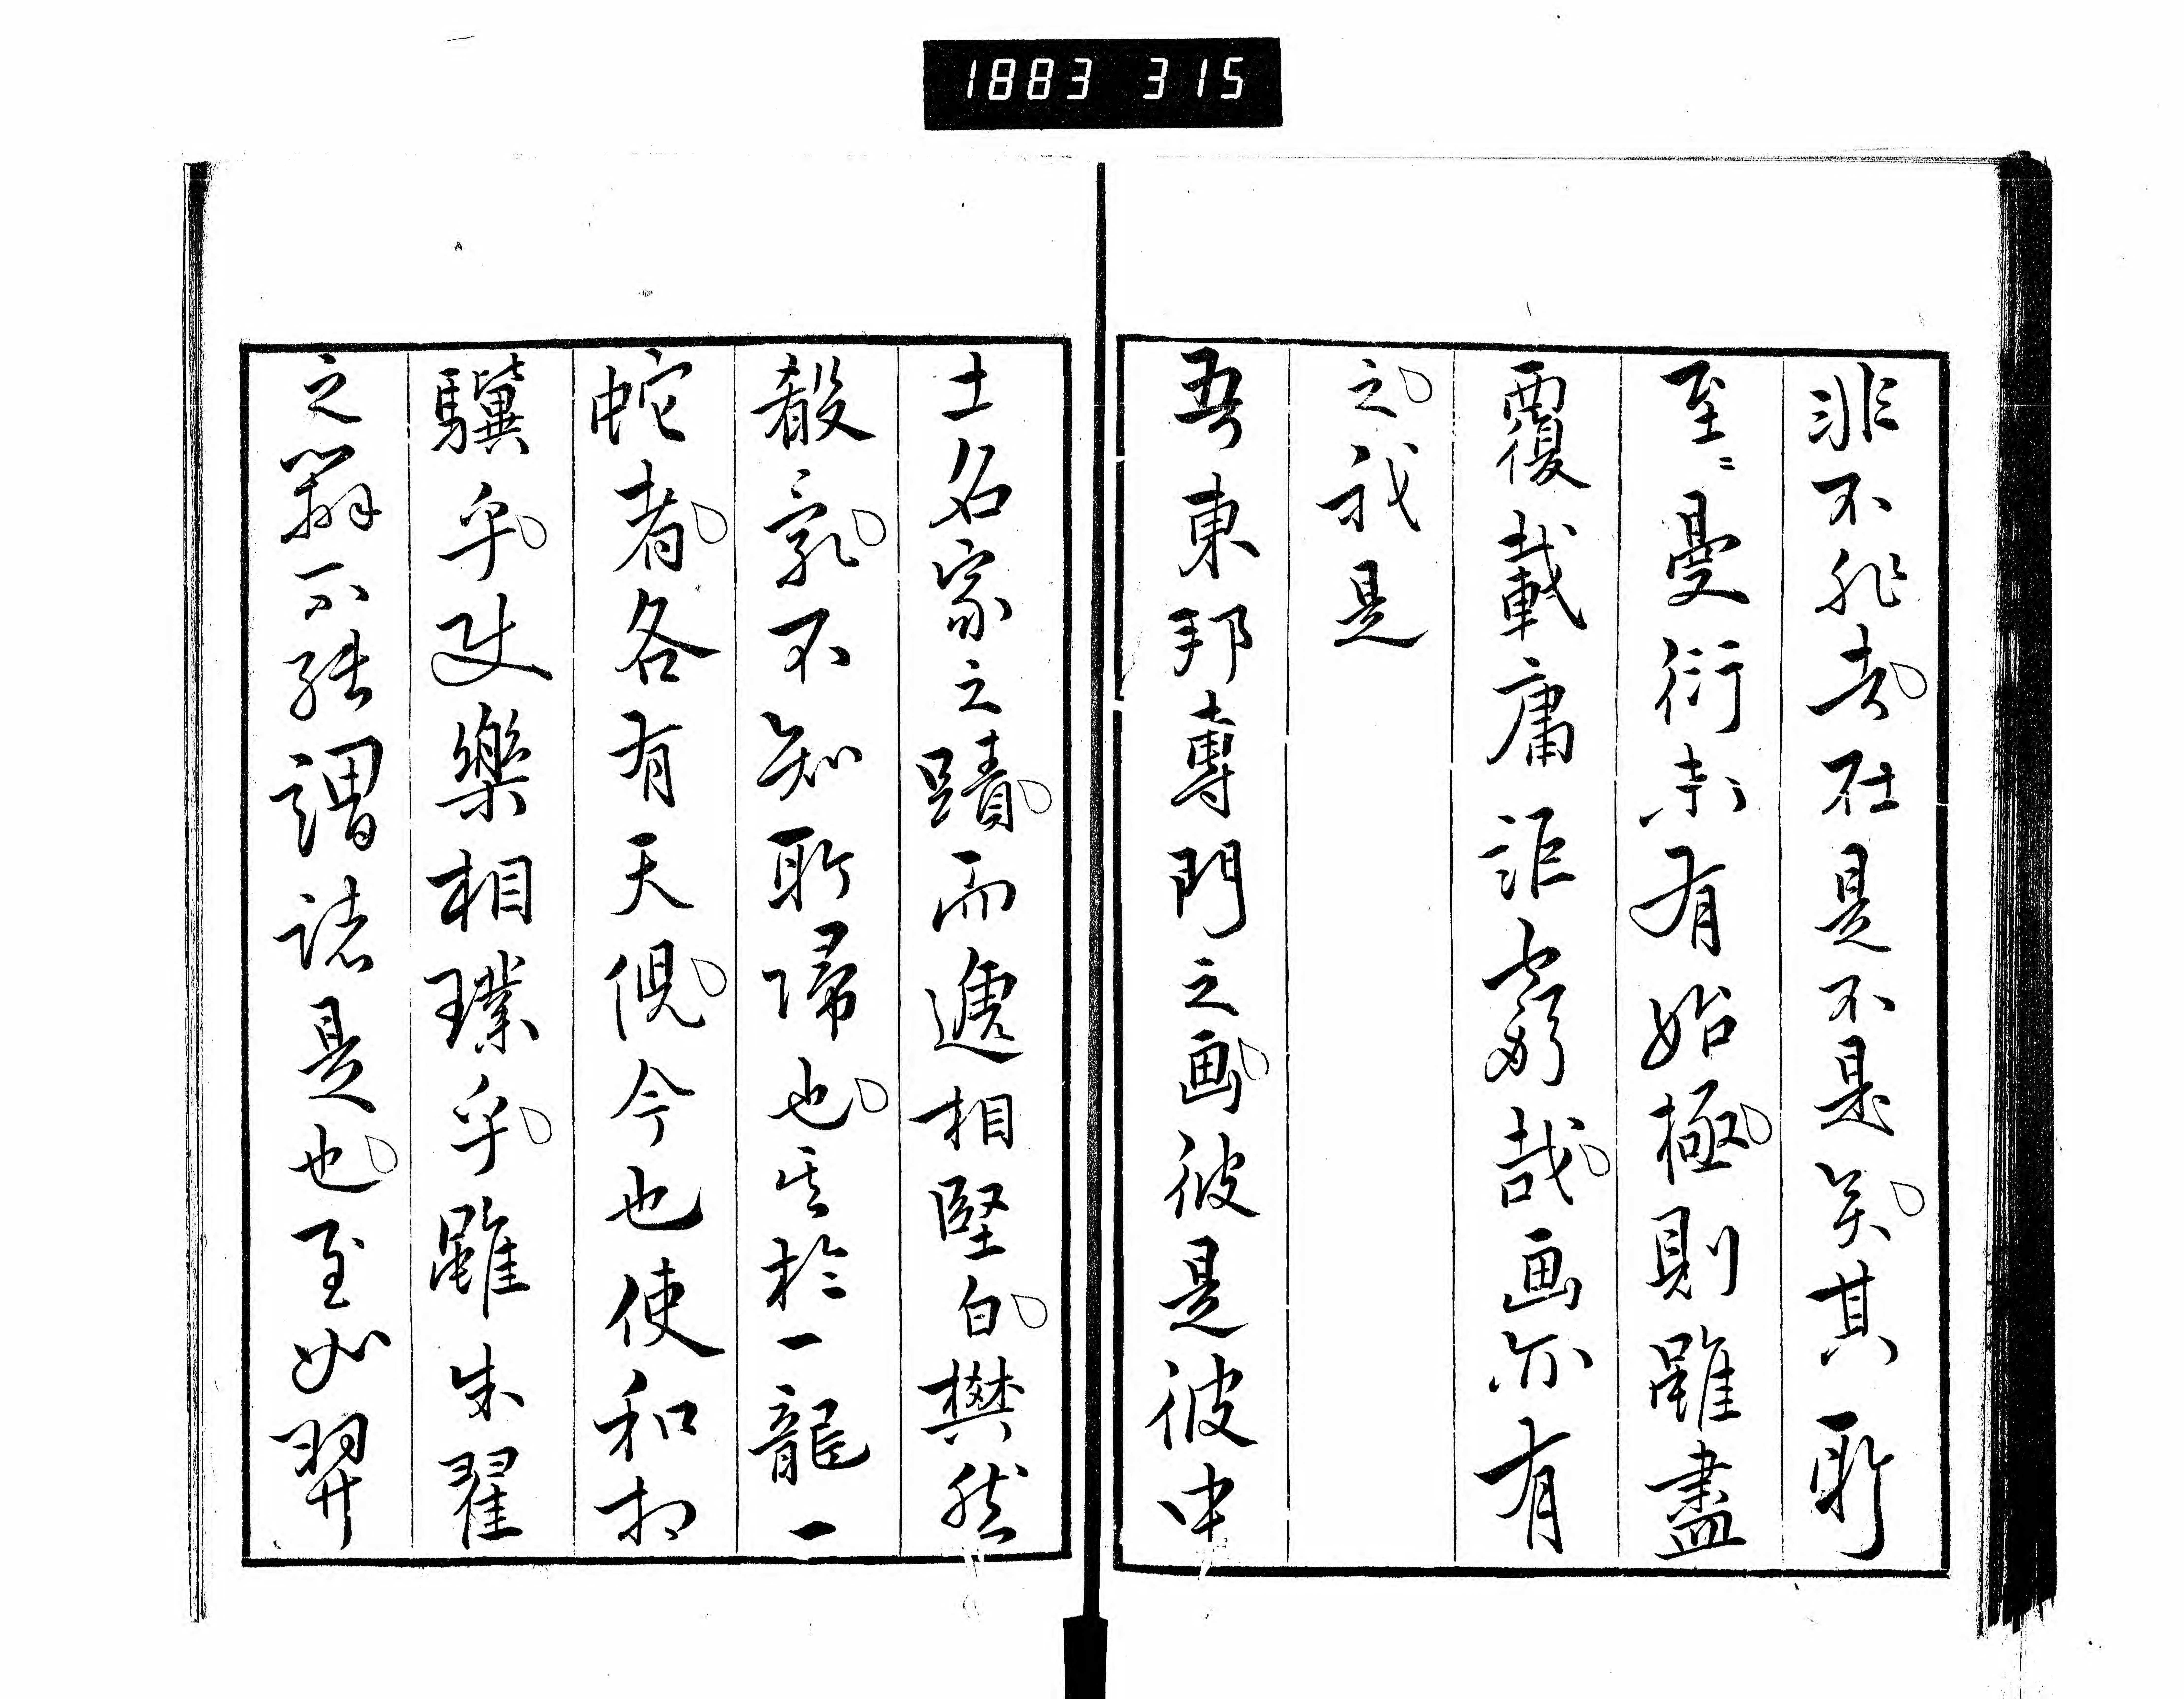 1883 315
非不非者在是不是矣其所
至〻曼衍未有始極則雖盡
覆載庸詎窮哉画亦有
之我是
吾東邦専門之画彼是彼中
士名家之蹟而遞相堅白樊然
殽乱不知所帰也其於一龍一
蛇者各有天倪今也使和扣
驥乎使樂相璞乎雖朱翟
之辯不能謂諸是也至如羿